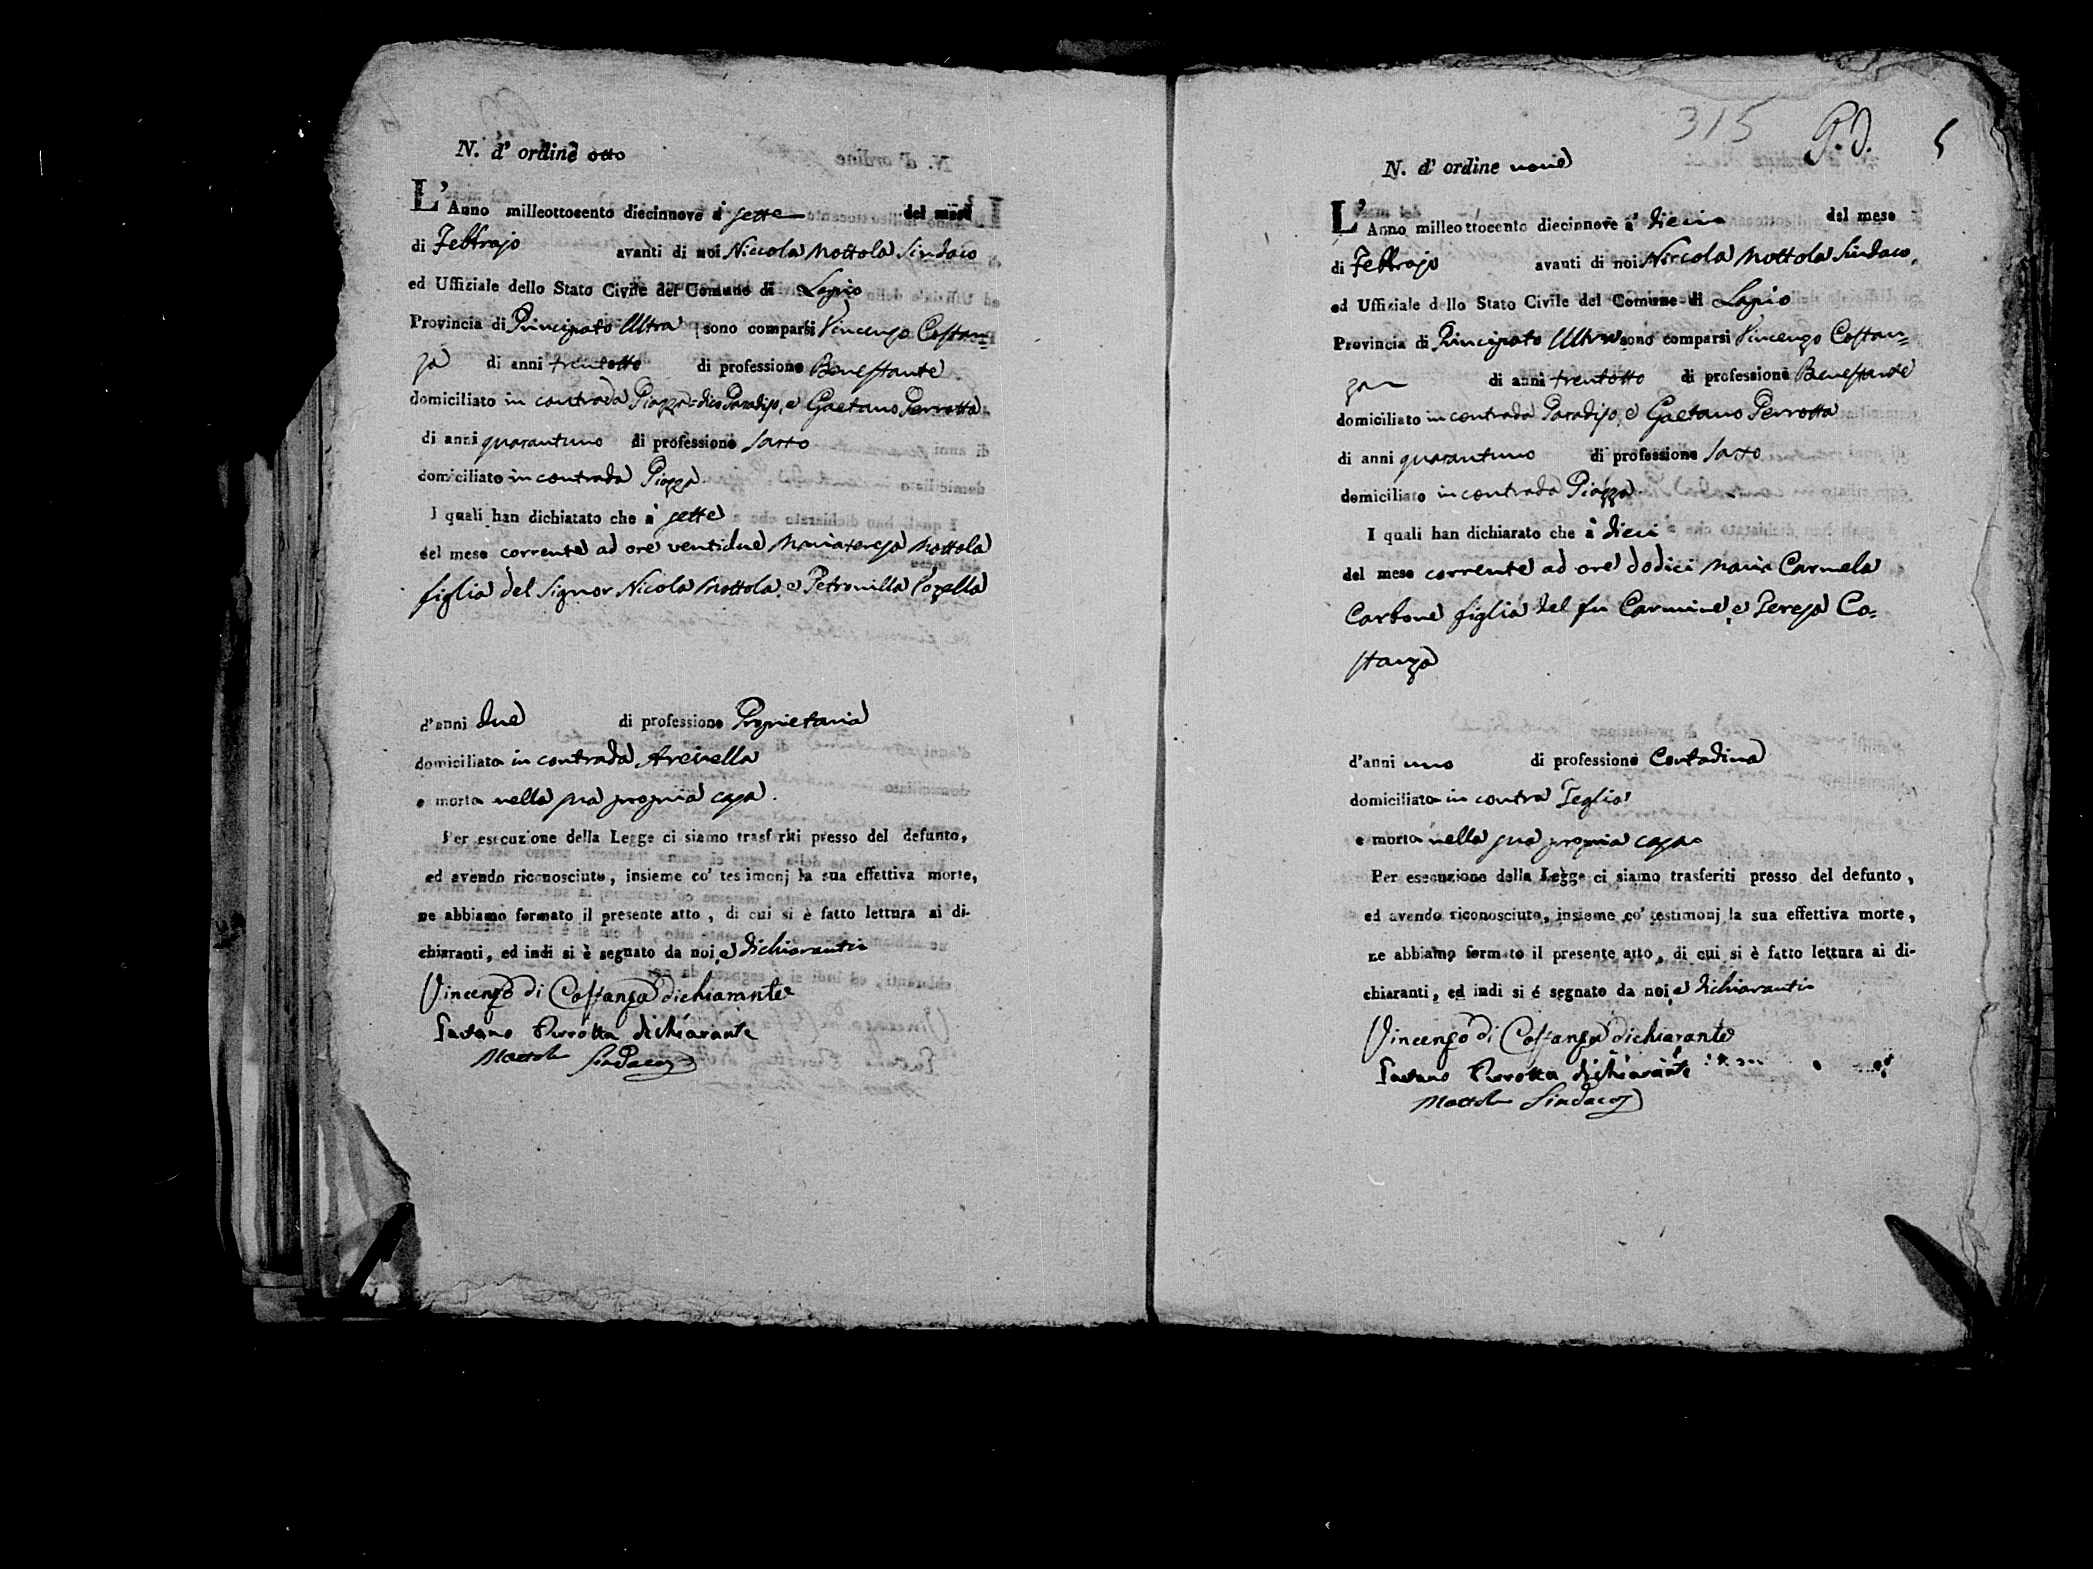 N. d' ordine otto
L'Anno milleottocento diecinnove à sette del mese
di Febbrajo avanti di noi Niccola Mottola Sindaco
ed Uffiziale dello Stato Civile del Comune di Lapio
Provincia di Principato Ultra sono comparsi Vincenzo Costan=
za di anni trentotto di professione Benestante
domiciliato in contrada Piazza Paradiso, e Gaetano Perrotta
di anni quarantuno di professione Sarto
domiciliato in contrada Piazza
I quali han dichiatato che a' sette
del mese corrente ad ore ventidue Mariateresa Mottola
figlia del Signor Nicola Mottola, e Petronilla Cozella
d'anni due di professione Proprietaria
domiciliata in contrada Areivella
e morta nella sua propria casa.
Per esecuzione della Legge ci siamo trasferiti presso del defunto,
ed avendo riconosciuto, insieme co' testimonj la sua effettiva morte,
ne abbiamo formato il presente atto, di cui si è fatto lettura ai di-
chiaranti, ed indi si è segnato da noi, e dichiaranti
Vincenzo di Costanza dichiarante
Gaetano Perrotta dichiarante
Mottola Sindaco
315 5
N. d' ordine nove
L'Anno milleottocento diecinnove a' dieci del mese
di Febbrajo avanti di noi Niccola Mottola Sindaco,
ed Uffiziale dello Stato Civile del Comune di Lapio
Provincia di Principato Ultra sono comparsi Vincenzo Costan=
za di anni trentotto di professione Benestante
domiciliato in contrada Paradiso, e Gaetano Perrotta
di anni quarantuno di professione Sarto
domiciliato in contrada Piazza
I quali han dichiarato che à dieci
del mese corrente ad ore dodici Maria Carmela
Carbone figlia del fu Carmine, e Teresa Co=
stanza
d'anni uno di professione Contadina
domiciliata in contra Teglia
e morta nella sua propria casa
Per esecuzione della Legge ci siamo trasferiti presso del defunto,
ed avendo riconosciuto, insieme co' testimonj la sua effettiva morte,
ne abbiamo formato il presente atto, di cui si è fatto lettura ai di-
chiaranti, ed indi si é segnato da noi, e dichiaranti
Vincenzo di Costanza dichiarante
Gaetano Perrotta dichiarante
Mottola Sindaco